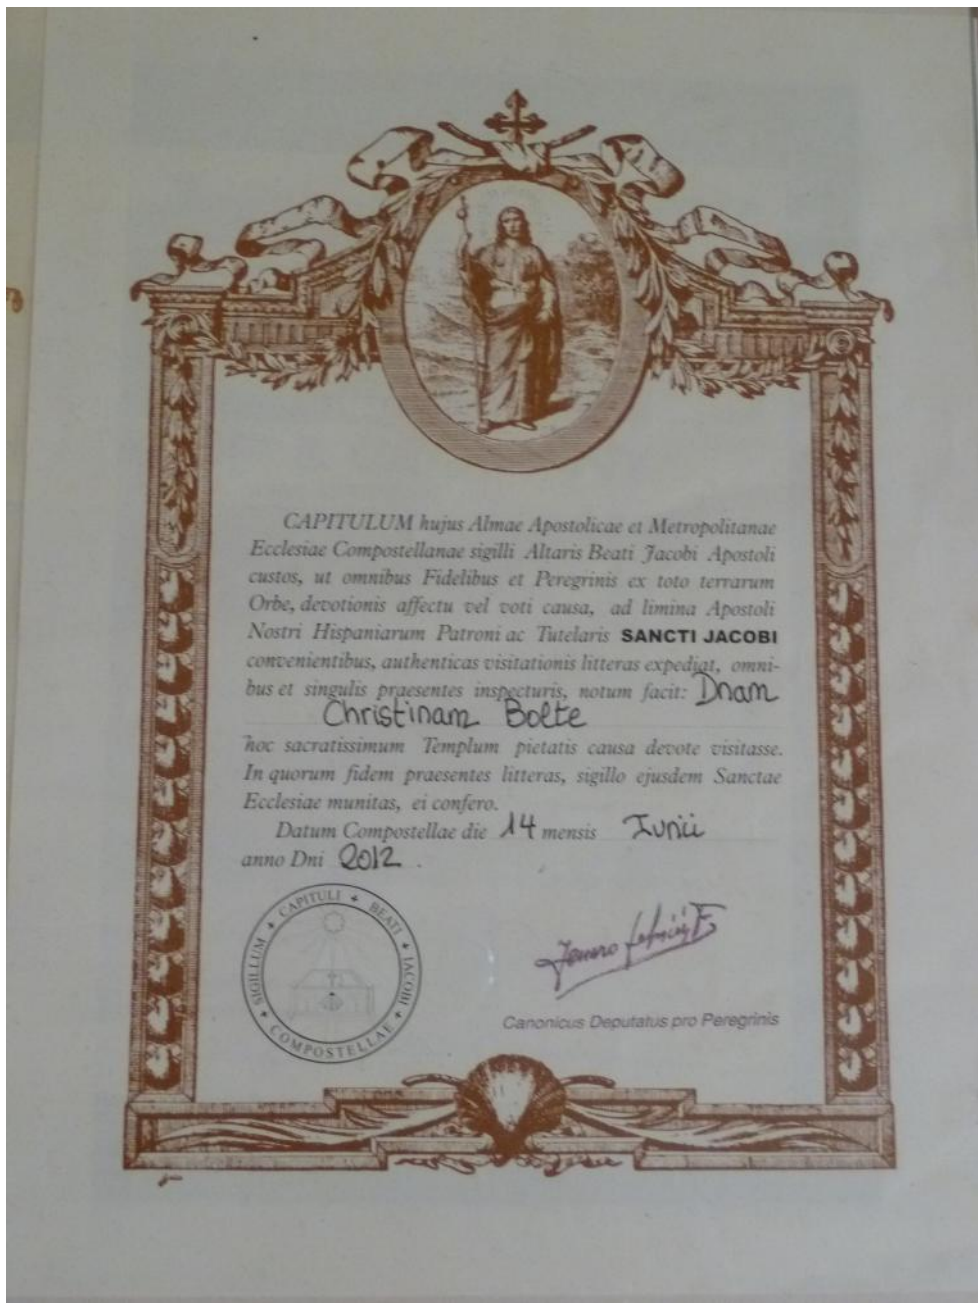 CAPITULUM hujus Almae Apostolicae et Metropolitanae
Ecclesiae Compostellanae sigilli Altaris Beati Jacobi Apostoli
custos, ut omnibus Fidelibus et Peregrinis ex toto terrarum
Orbe, devotionis affectu vel voti causa, ad limina Apostoli
Nostri Hispaniarum Patroni ac Tutelaris SANCTI JACOBI
convenientibus, authenticas visitationis litteras expediat, omni-
bus et singulis praesentes inspecturis, notum facit: Dnam
Christinam Bolte
hoc sacratissimum Templum pietatis causa devote visitasse.
In quorum fidem praesentes litteras, sigillo ejusdem Sanctae
Ecclesiae munitas, ei confero.
Datum Compostellae die 14 mensis Iunii
anno Dni 2012.
SIGILLUM + CAPITULI + BEATI + IACOBI + COMPOSTELLAE +
Canonicus Deputatus pro Peregrinis